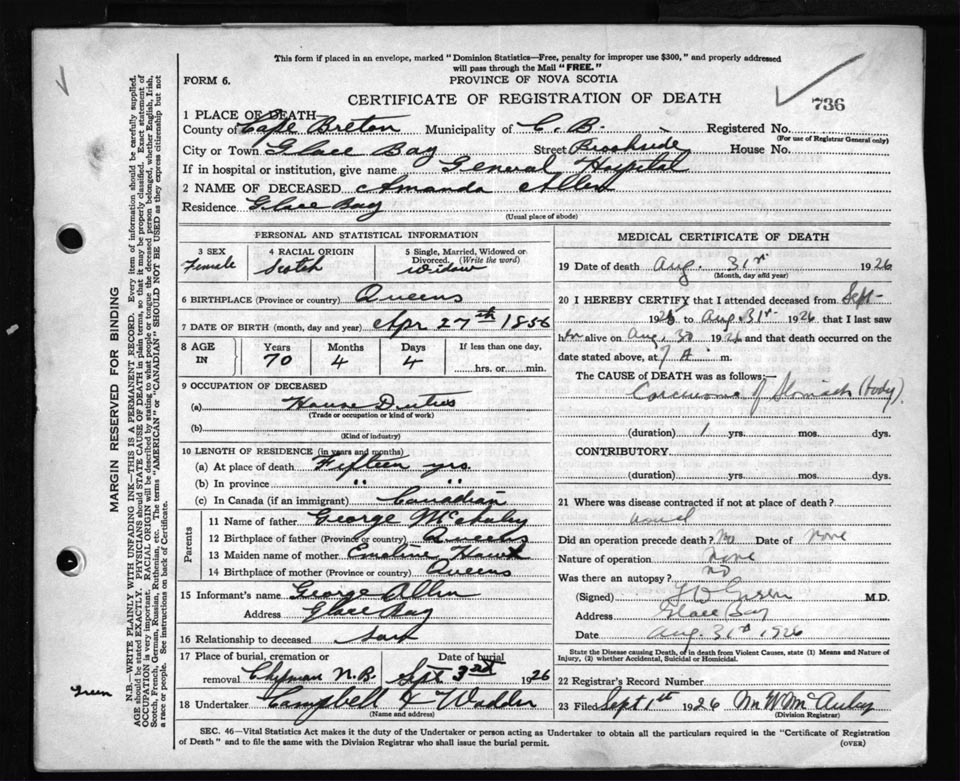 This form if placed in an envelope, marked "Dominion Statistics—Free, penalty for improper use $300," and properly addressed
will pass through the Mail "FREE."
FORM 6.
PROVINCE OF NOVA SCOTIA
CERTIFICATE OF REGISTRATION OF DEATH
736
1 PLACE OF DEATH—
County of Cape Breton Municipality of C. B. Registered No.
(For use of Registrar General only)
City or Town Glace Bay Street Brookside House No.
If in hospital or institution, give name General Hospital
2 NAME OF DECEASED Amanda Allen
Residence Glace Bay
(Usual place of abode)
PERSONAL AND STATISTICAL INFORMATION
3 SEX
Female
4 RACIAL ORIGIN
Scotch
5 Single, Married, Widowed or Divorced. (Write the word)
widow
6 BIRTHPLACE (Province or country) Queens
7 DATE OF BIRTH (month, day and year) Apr 27th 1856
8 AGE IN
Years Months Days If less than one day,
70 4 4 hrs. or min.
9 OCCUPATION OF DECEASED
(a) House Duties
(Trade or occupation or kind of work)
(b)
(Kind of industry)
10 LENGTH OF RESIDENCE (in years and months)
(a) At place of death Fifteen yrs.
(b) In province " "
(c) In Canada (if an immigrant) Canadian
Parents
11 Name of father George
12 Birthplace of father (Province or country) Queens
13 Maiden name of mother Emeline
14 Birthplace of mother (Province or country) Queens
15 Informant's name George Allen
Address Glace Bay
16 Relationship to deceased Son
17 Place of burial, cremation or removal Chipman N.B. Date of burial Sept 3rd 1926
18 Undertaker Campbell & Wadden
(Name and address)
MEDICAL CERTIFICATE OF DEATH
19 Date of death Aug. 31st 1926
(Month, day and year)
20 I HEREBY CERTIFY that I attended deceased from Sept-
1925 to Aug 31st 1926 that I last saw
her alive on Aug. 30 1926 and that death occurred on the
date stated above, at 7 A. m.
The CAUSE OF DEATH was as follows:—
Carcinoma of Stomach (body).
(duration) 1 yrs. mos. dys.
CONTRIBUTORY
(duration) yrs. mos. dys.
21 Where was disease contracted if not at place of death?
Did an operation precede death? No Date of None
Nature of operation None
Was there an autopsy? No
(Signed) M.D.
Address Glace Bay
Date Aug. 31st 1926
State the Disease causing Death, or in death from Violent Causes, state (1) Means and Nature of Injury, (2) whether Accidental, Suicidal or Homicidal.
22 Registrar's Record Number
23 Filed Sept 1st 1926
(Division Registrar)
SEC. 46—Vital Statistics Act makes it the duty of the Undertaker or person acting as Undertaker to obtain all the particulars required in the "Certificate of Registration
of Death" and to file the same with the Division Registrar who shall issue the burial permit. (OVER)
MARGIN RESERVED FOR BINDING
N.B.—WRITE PLAINLY WITH UNFADING INK—THIS IS A PERMANENT RECORD. Every item of information should be carefully supplied.
AGE should be stated EXACTLY. PHYSICIANS should STATE CAUSE OF DEATH in plain terms, so that it may be properly classified. Exact statement of
OCCUPATION is very important. RACIAL ORIGIN will be described by stating to what people or tongue the deceased person belonged, whether English, Irish,
Scotch, French, German, Russian, Ruthenian, etc. The terms "AMERICAN" or "CANADIAN" SHOULD NOT BE USED as they express citizenship but not
a race or people. See instructions on back of Certificate.
Green